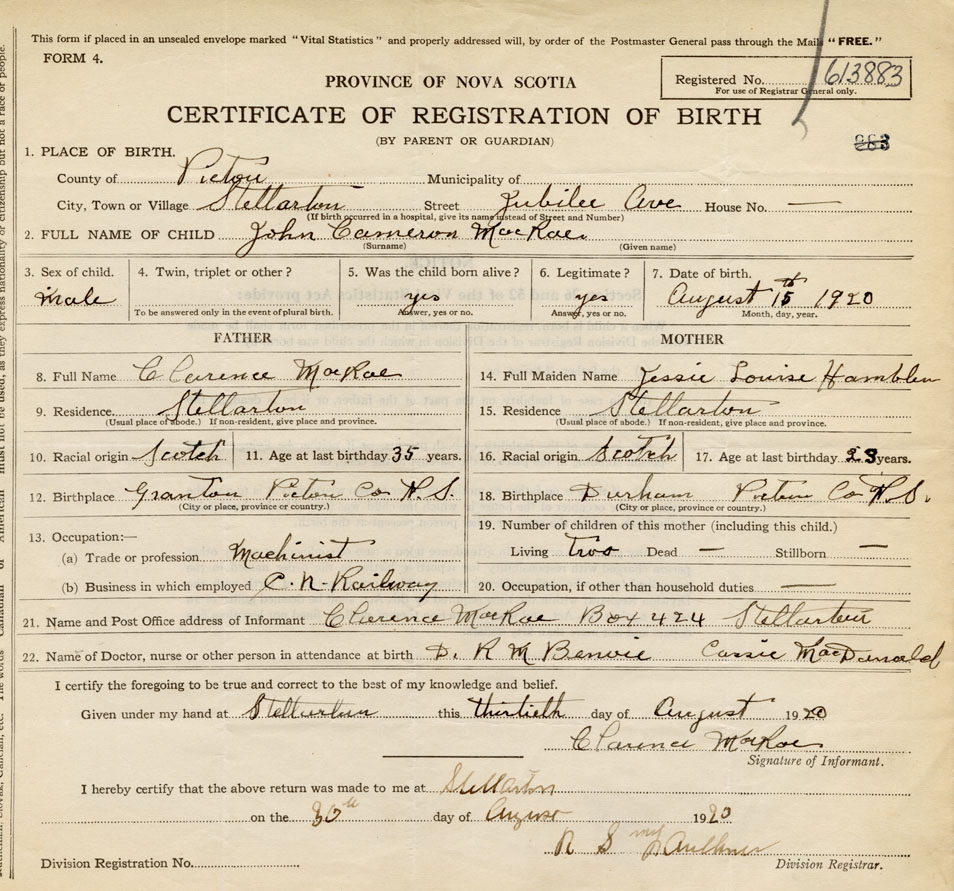 This form if placed in an unsealed envelope marked "Vital Statistics" and properly addressed will, by order of the Postmaster General pass through the Mails "FREE."
FORM 4.
PROVINCE OF NOVA SCOTIA
Registered No. 613883
For use of Registrar General only.
CERTIFICATE OF REGISTRATION OF BIRTH
(BY PARENT OR GUARDIAN)
883
1. PLACE OF BIRTH.
County of Pictou Municipality of
City, Town or Village Stellarton Street Jubilee Ave House No. —
(If birth occurred in a hospital, give its name instead of Street and Number)
2. FULL NAME OF CHILD John Cameron MacRae
(Surname) (Given name)
3. Sex of child. 4. Twin, triplet or other? 5. Was the child born alive? 6. Legitimate? 7. Date of birth.
male yes yes August 15th 1920
To be answered only in the event of plural birth. Answer, yes or no. Answer, yes or no. Month, day, year.
FATHER MOTHER
8. Full Name Clarence MacRae 14. Full Maiden Name Jessie Louise Hamblen
9. Residence. Stellarton 15. Residence Stellarton
(Usual place of abode.) If non-resident, give place and province. (Usual place of abode.) If non-resident, give place and province.
10. Racial origin Scotch 11. Age at last birthday 35 years. 16. Racial origin Scotch 17. Age at last birthday 23 years.
12. Birthplace Granton Pictou Co N.S. 18. Birthplace Durham Pictou Co N.S.
(City or place, province or country.) (City or place, province or country.)
13. Occupation:— 19. Number of children of this mother (including this child.)
(a) Trade or profession Machinist Living two Dead — Stillborn —
(b) Business in which employed C. N. Railway 20. Occupation, if other than household duties —
21. Name and Post Office address of Informant Clarence MacRae Box 424 Stellarton
22. Name of Doctor, nurse or other person in attendance at birth D. R M Benvie Cassie MacDonald
I certify the foregoing to be true and correct to the best of my knowledge and belief.
Given under my hand at Stellarton this thirtieth day of August 1920
Clarence MacRae
Signature of Informant.
I hereby certify that the above return was made to me at Stellarton
on the 30th day of August 1920
R S Faulkner
Division Registration No. Division Registrar.